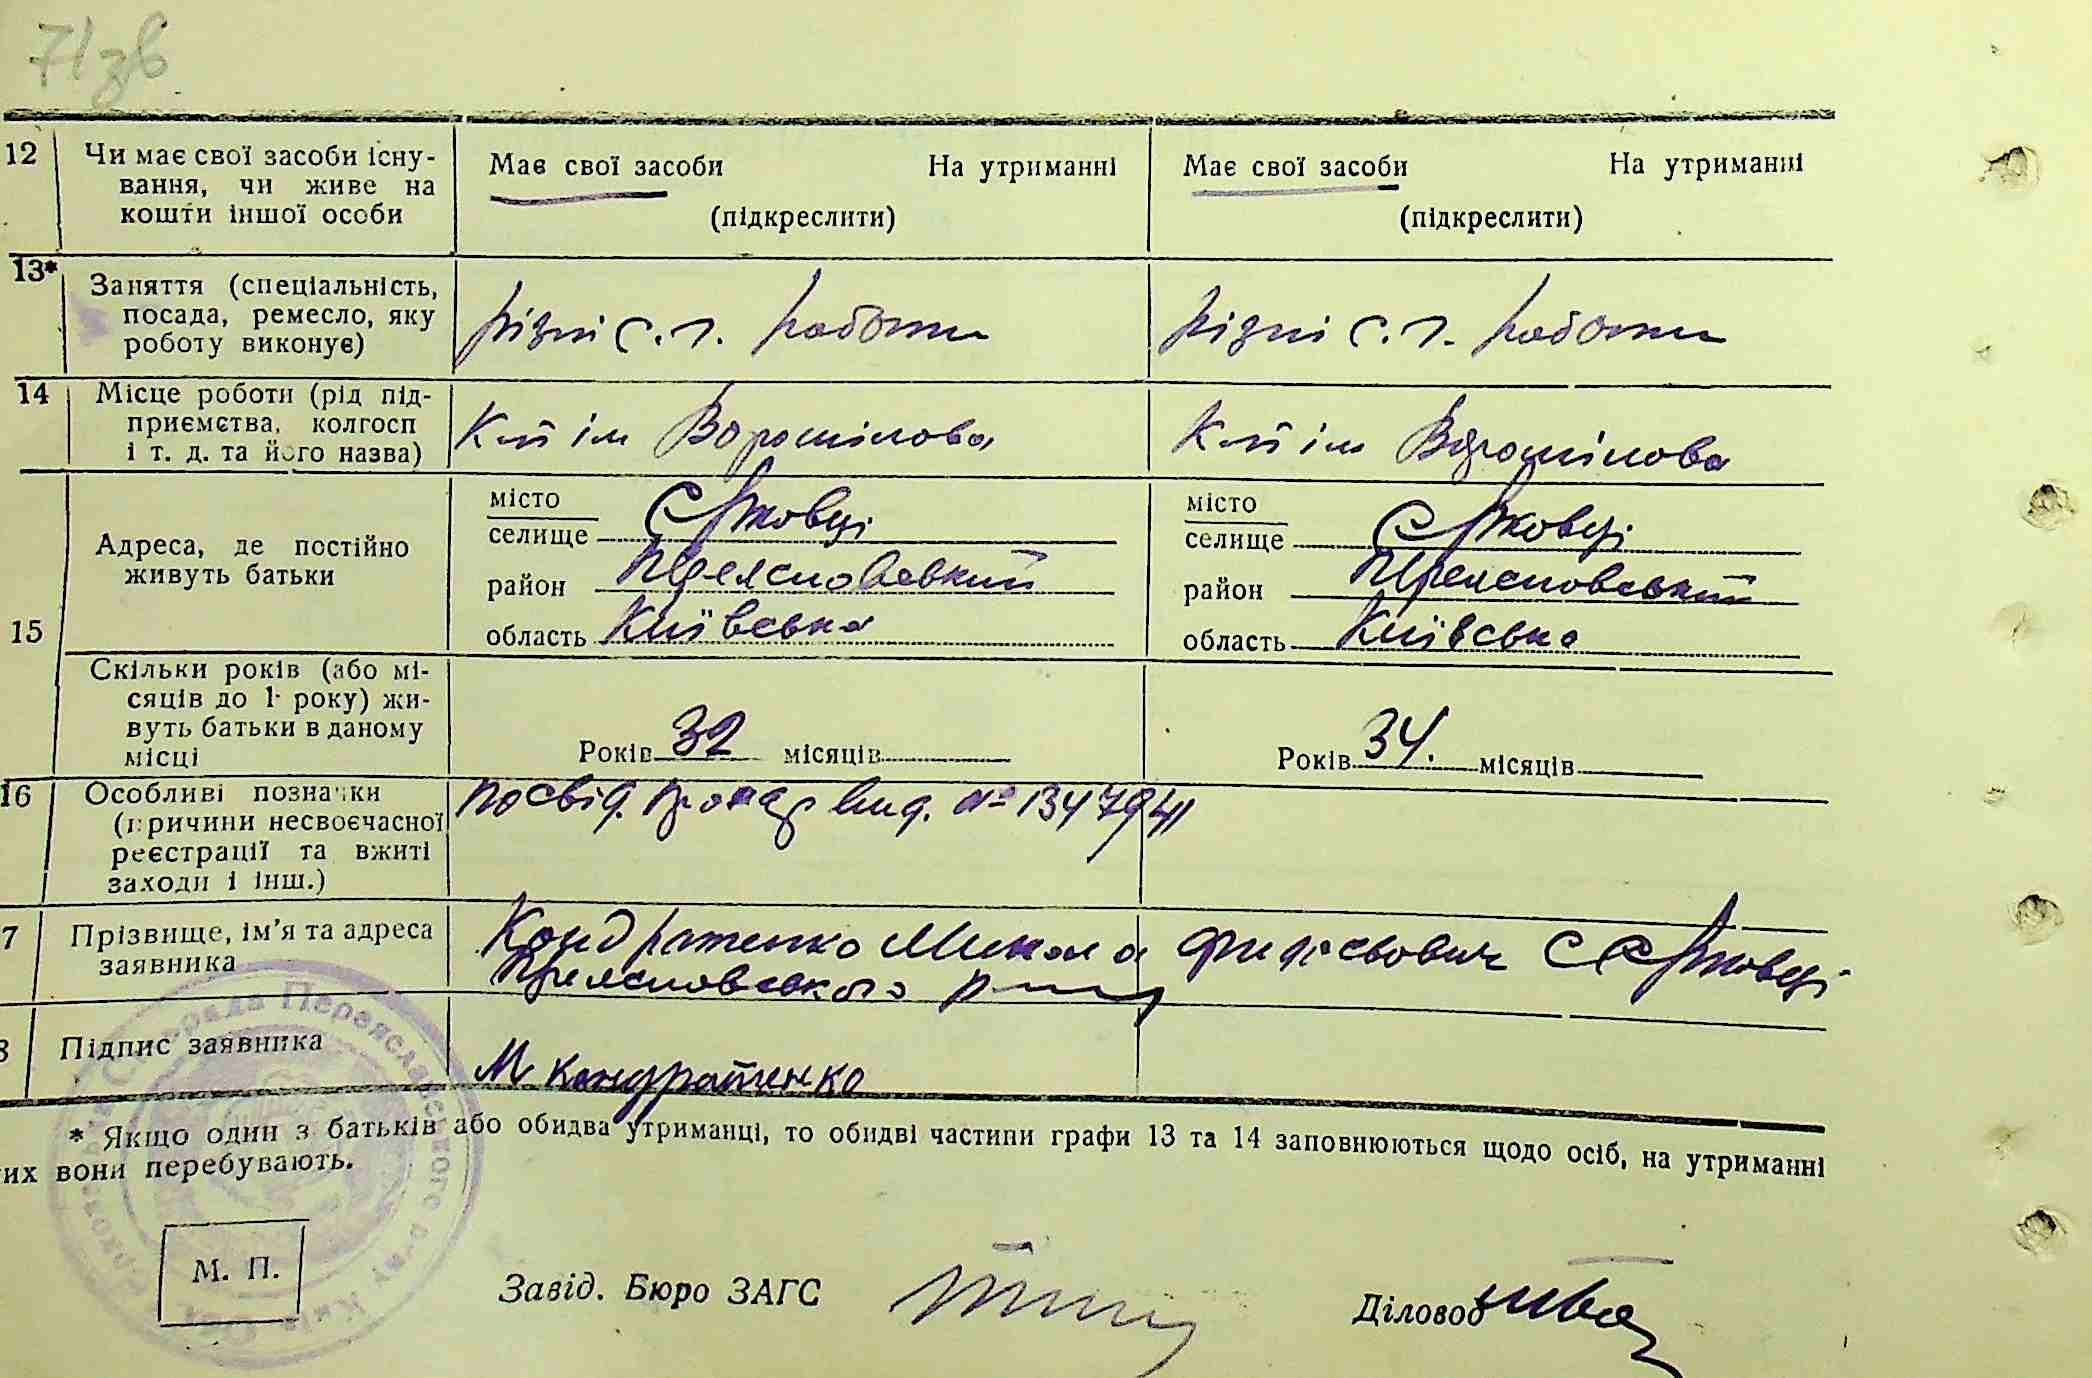 71зв
12 Чи має свої засоби існу-
вання, чи живе на
кошти іншої особи
Має свої засоби На утриманні
(підкреслити)
Має свої засоби На утриманні
(підкреслити)
13* Заняття (спеціальність,
посада, ремесло, яку
роботу виконує)
різні с. г. роботи
різні с. г. роботи
14 Місце роботи (рід під-
приємства, колгосп
і т. д. та його назва)
К-п ім Ворошілова
К-п ім Ворошілова
15 Адреса, де постійно
живуть батьки
місто
селище Єрковці
район Переяславський
область Київська
місто
селище Єрковці
район Переяславський
область Київська
Скільки років (або мі-
сяців до 1 року) жи-
вуть батьки в даному
місці
Років 32 місяців
Років 34. місяців
16 Особливі позначки
(причини несвоєчасної
реєстрації та вжиті
заходи і інш.)
Посвід. про нар вид. № 1347941
7 Прізвище, ім'я та адреса
заявника
Кондратенко Микола с Єрковці
Переяславського р-ну
8 Підпис заявника
М Кондратенко
* Якщо один з батьків або обидва утриманці, то обидві частини графи 13 та 14 заповнюються щодо осіб, на утриманні
их вони перебувають.
М. П.
Завід. Бюро ЗАГС
Діловод
Сільрада Переяславського р-ну Київ. обл.